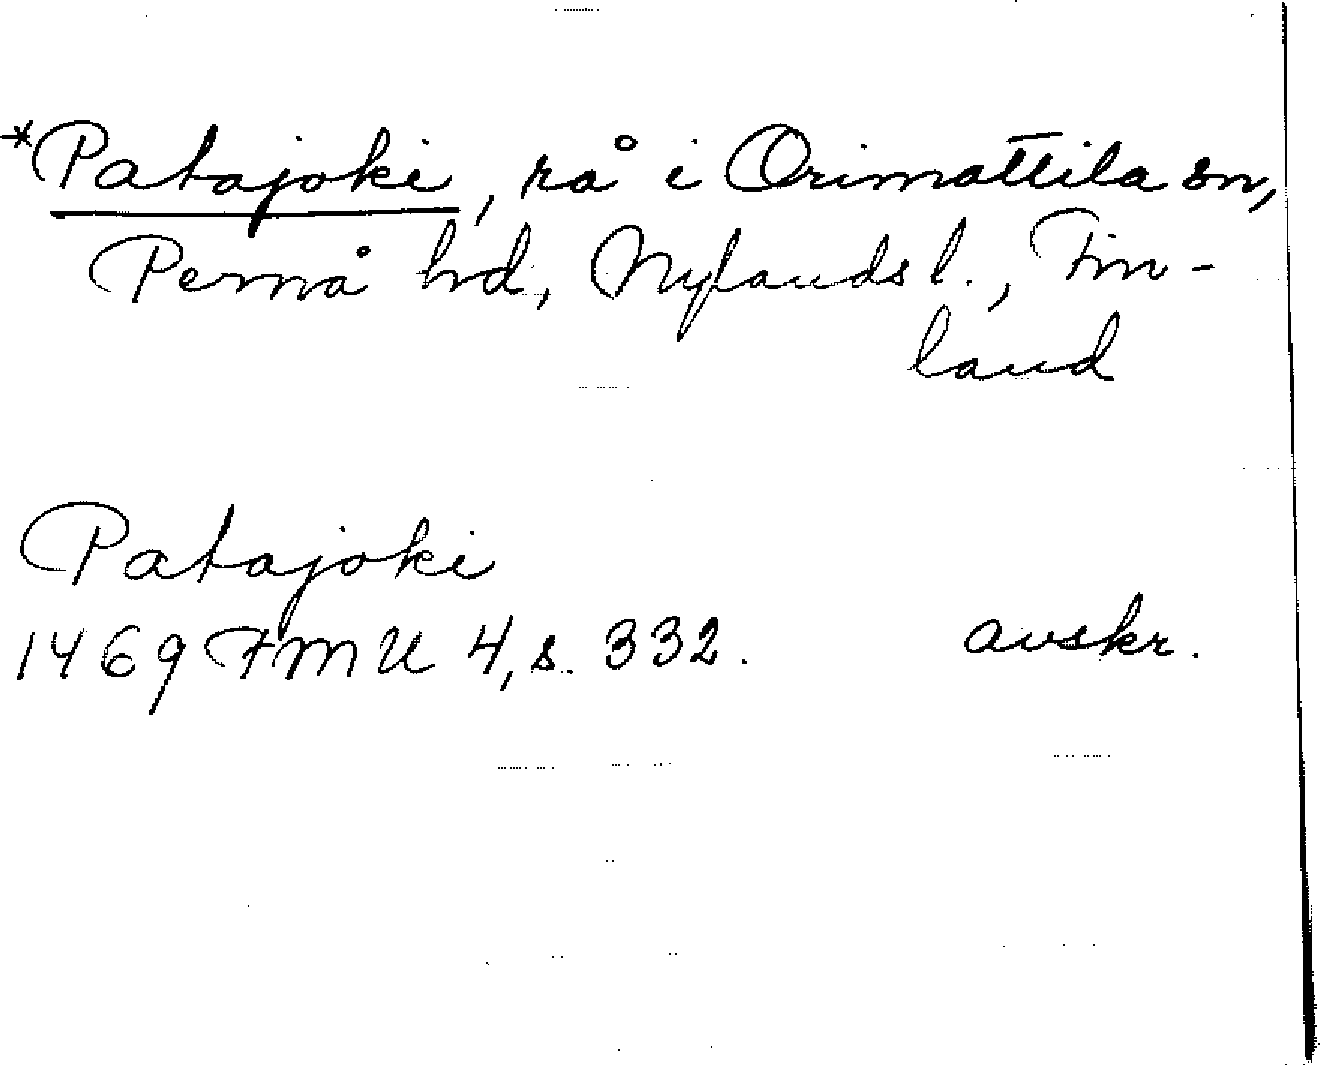 *Patajoki, rå i Orimattila sn,
Pernå hd, Nylands l., Fin-
land
Patajoki
1469 FMU 4, s. 332. avskr.